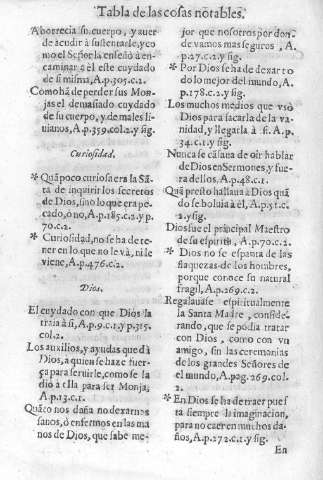 Tabla de las cosas nōtables.
Aborrecia su cuerpo, y auer
de acudir à sustentarle, y co
mo el Señor la enseñò à en-
caminar à èl este cuydado
de si misma, A.p.305.c.2.
Como hā de perder sus Mon-
jas el demasiado cuydado
de su cuerpo, y de males li-
uianos, A.p.359.col.2.y sig.
Curiosidad.
* Quā poco curiosa era la Sā-
ta de inquirir los secretos
de Dios, sino lo que era pe-
cado, ò no, A.p.185.c.2. y p.
70.c.2.
* Curiosidad, no se ha de te-
ner en lo que no le và, ni le
viene, A.p.476.c.2.
Dios.
El cuydado con que Dios la
traìa à sì, A.p.9.c.1.y p.315.
col.2.
Los auxilios, y ayudas que dà
Dios, a quien se haze fuer-
ça para seruirle, como se la
dio à ella para ser Monja,
A.p.13.c.1.
Quāto nos daña no dexarnos
sanos, ò enfermos en las ma
nos de Dios, que sabe me-
jor que nosotros por don-
de vamos mas seguros, A.
p.27.c.2.y sig.
* Por Dios se ha de dexar to
do lo mejor del mundo, A.
p.178.c.2.y sig.
Los muchos medios que vsò
Dios para sacarla de la va-
nidad, y llegarla à sì. A.p.
34.c.1.y sig.
Nunca se cāsaua de oir hablar
de Dios en Sermones, y fue-
ra dellos. A.p.48.c.1.
Quā presto hallaua à Dios quā
do se boluia à èl, A.p.51.c.
2.y sig.
Dios fue el principal Maestro
de su espiritu, A.p.70.c.2.
* Dios no se espanta de las
flaquezas de los hombres,
porque conoce su natural
fragil, A.p.269.c.2.
Regalauase espiritualmente
la Santa Madre, conside-
rando, que se podia tratar
con Dios, como con vn
amigo, sin las ceremonias
de los grandes Señores de
el mundo, A.pag.269.col.
2.
* En Dios se ha de traer pues
ta siempre la imaginacion,
para no caer en muchos da-
ños, A.p.172.c.1.y sig.
En